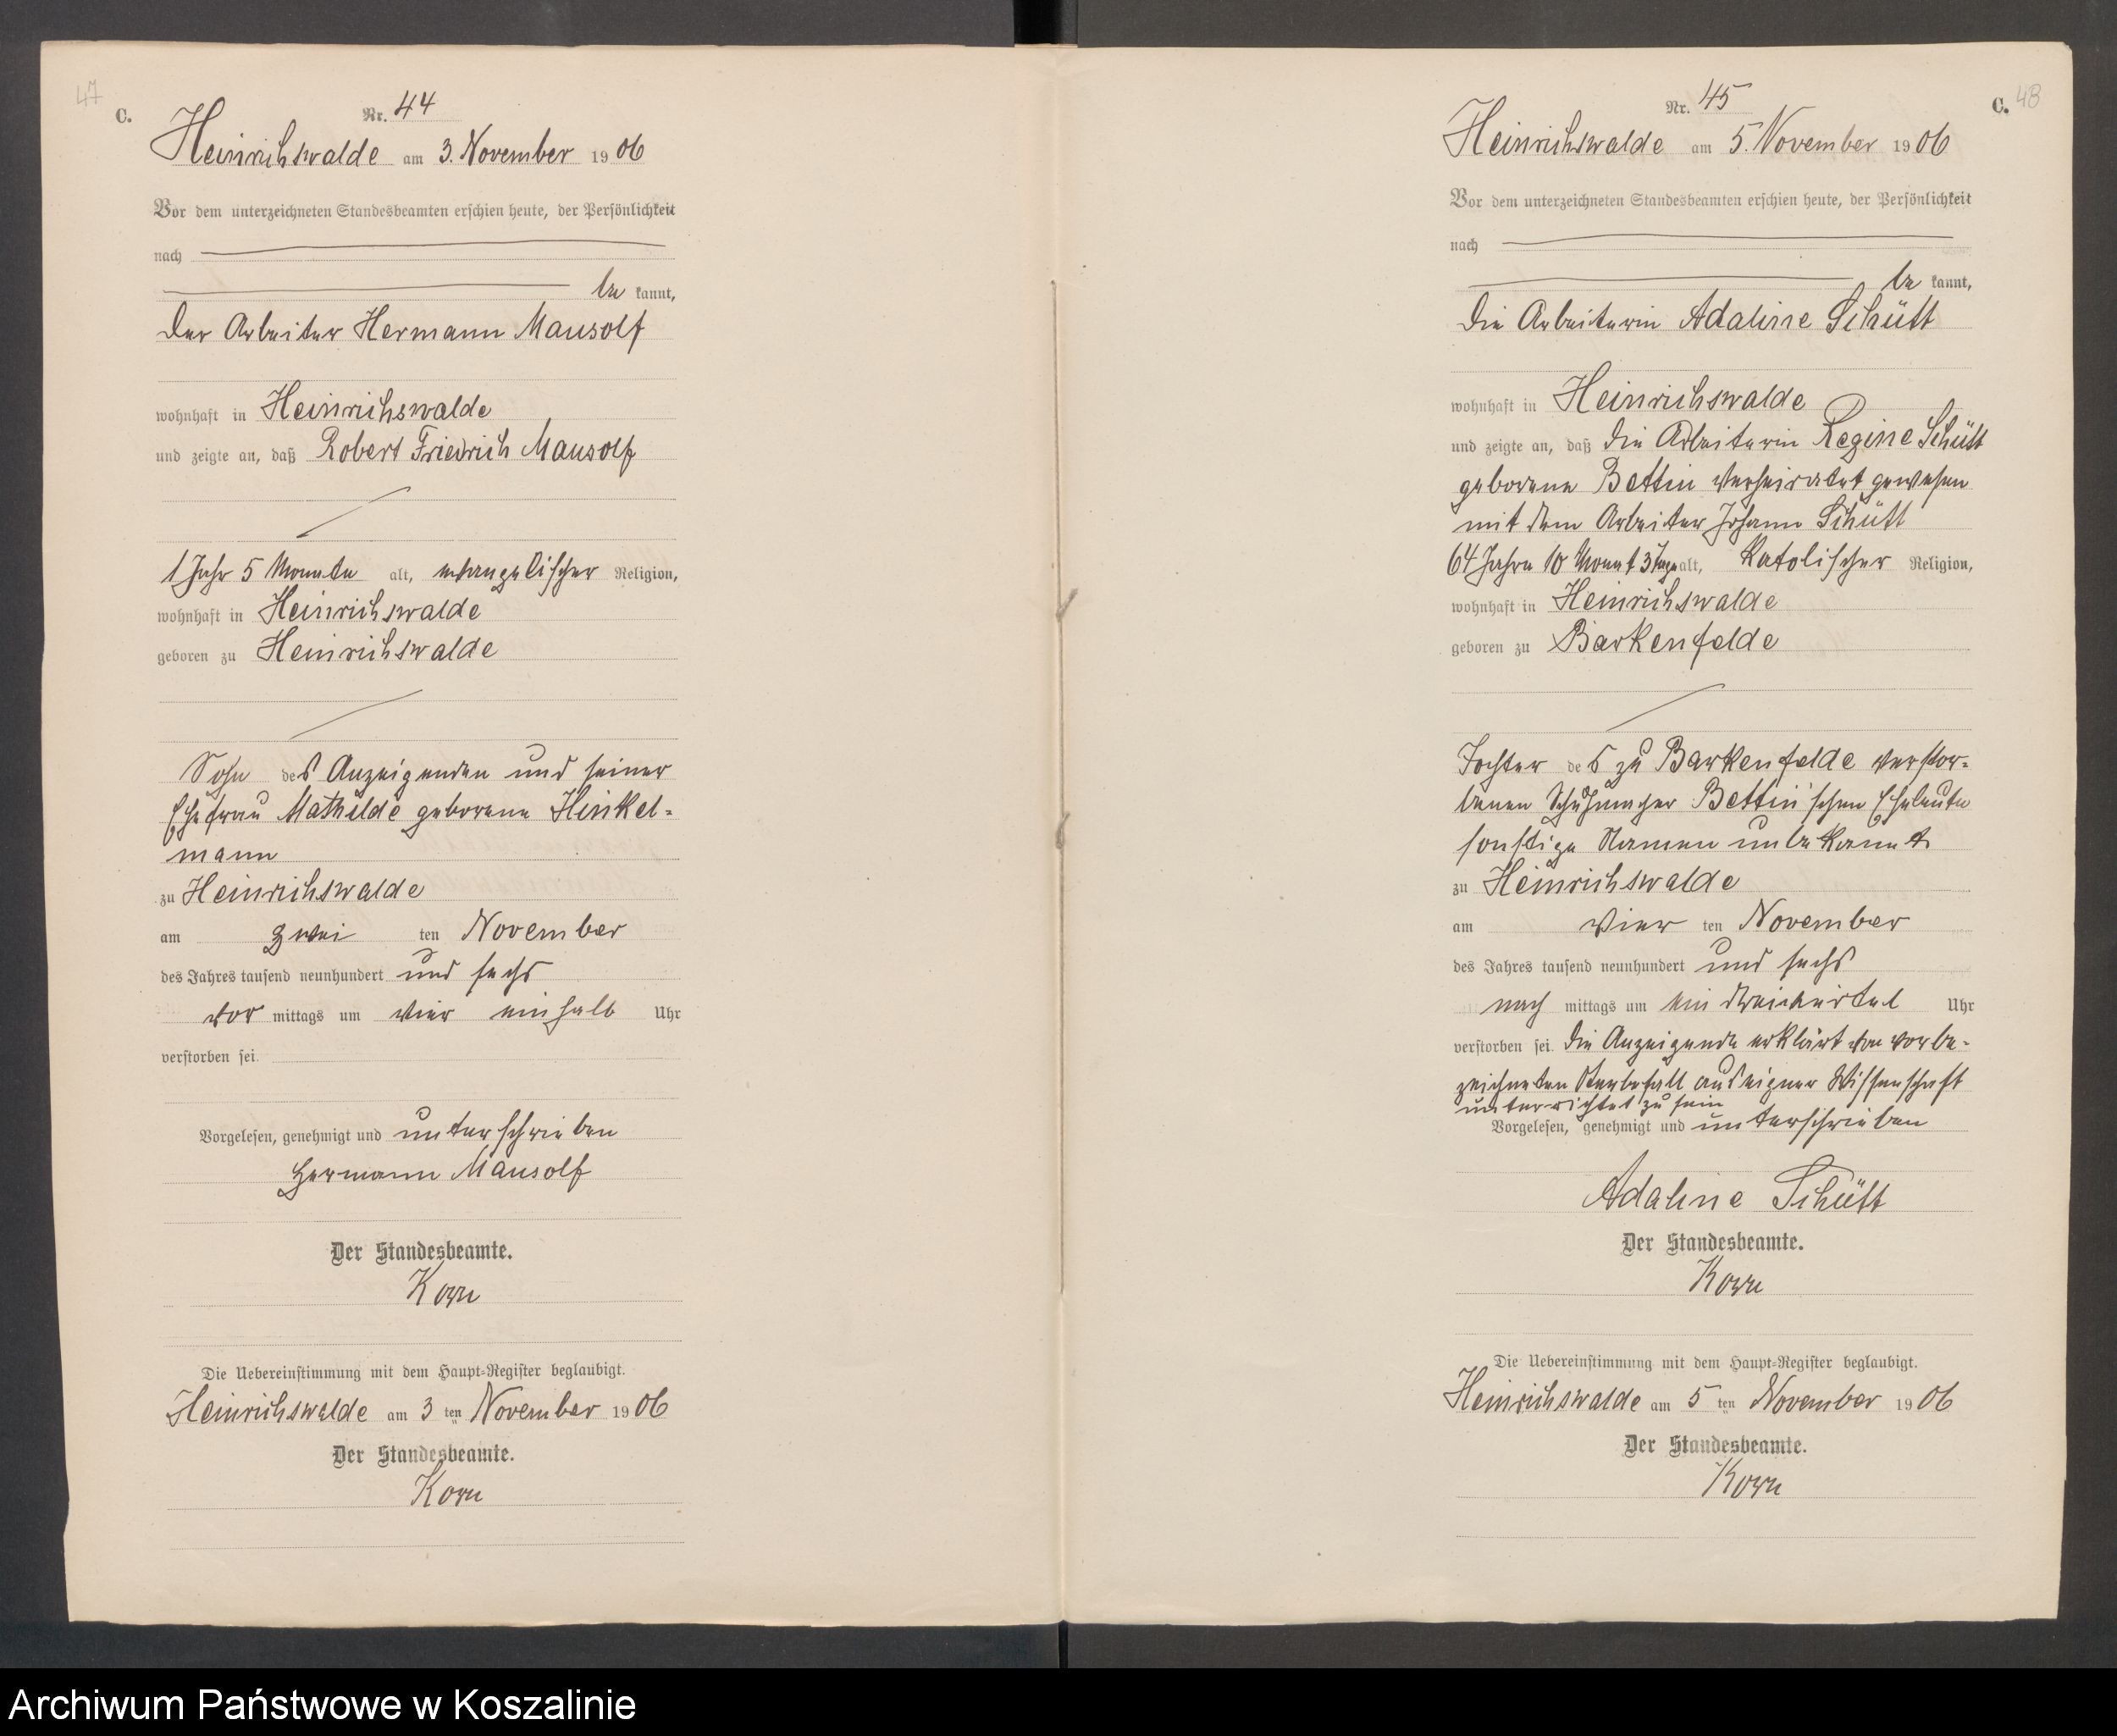 47
C.
Nr. 44
Heinrichswalde am 3. November 1906
Vor dem unterzeichneten Standesbeamten erschien heute, der Persönlichkeit
nach
be kannt,
der Arbeiter Hermann Mausolf
wohnhaft in Heinrichswalde
und zeigte an, daß Robert Friedrich Mausolf
1 Jahr 5 Monate alt, evangelischer Religion,
wohnhaft in Heinrichswalde
geboren zu Heinrichswalde
Sohn des Anzeigenden und seiner
Ehefrau Mathilde geborene Hinkel=
mann
zu Heinrichswalde
am zwei ten November
des Jahres tausend neunhundert und sechs
vor mittags um vier einhalb Uhr
verstorben sei.
Vorgelesen, genehmigt und unterschrieben
Hermann Mausolf
Der Standesbeamte.
Korn
Die Uebereinstimmung mit dem Haupt-Register beglaubigt.
Heinrichswalde am 3 ten November 1906
Der Standesbeamte.
Korn
48
C.
Nr. 45
Heinrichswalde am 5. November 1906
Vor dem unterzeichneten Standesbeamten erschien heute, der Persönlichkeit
nach
be kannt,
die Arbeiterin Adaline Schütt
wohnhaft in Heinrichswalde
und zeigte an, daß die Arbeiterin Regine Schütt
geborene Bettin verheiratet gewesen
mit dem Arbeiter Johann Schütt
64 Jahre 10 Monat 3 Tage alt, Katolischer Religion,
wohnhaft in Heinrichswalde
geboren zu Barkenfelde
Tochter des zu Barkenfelde verstor=
benen Schuhmacher Bettin'schen Eheleute
sonstige Namen unbekannt
zu Heinrichswalde
am vier ten November
des Jahres tausend neunhundert und sechs
nach mittags um ein dreiviertel Uhr
verstorben sei. Die Anzeigende erklärt von vorbe=
zeichneten Sterbefall aus eigner Wissenschaft
unterrichtet zu sein
Vorgelesen, genehmigt und unterschrieben
Adaline Schütt
Der Standesbeamte.
Korn
Die Uebereinstimmung mit dem Haupt-Register beglaubigt.
Heinrichswalde am 5 ten November 1906
Der Standesbeamte.
Korn
Archiwum Państwowe w Koszalinie